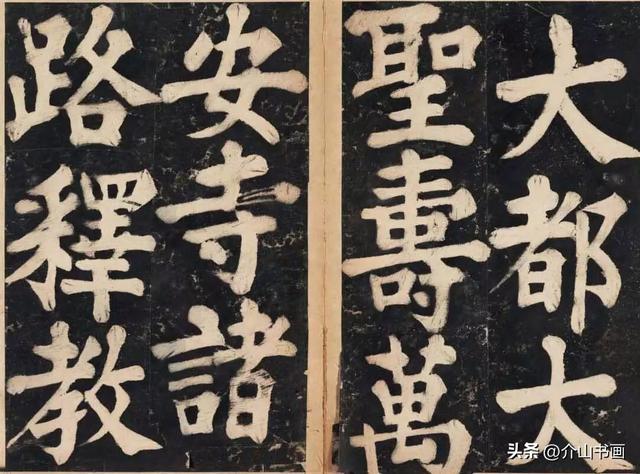 大都大
聖壽萬
安寺諸
路釋教
头条@介山书画